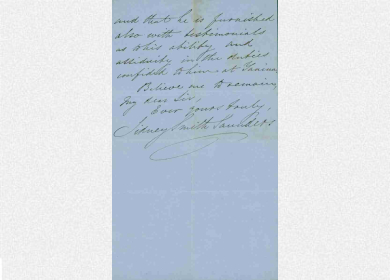 and that he is furnished
also with testimonials
as to his ability and
assiduity in the duties
confided to him at
Believe me to remain,
My dear Sir,
Ever yours truly,
Sidney Smith Saunders